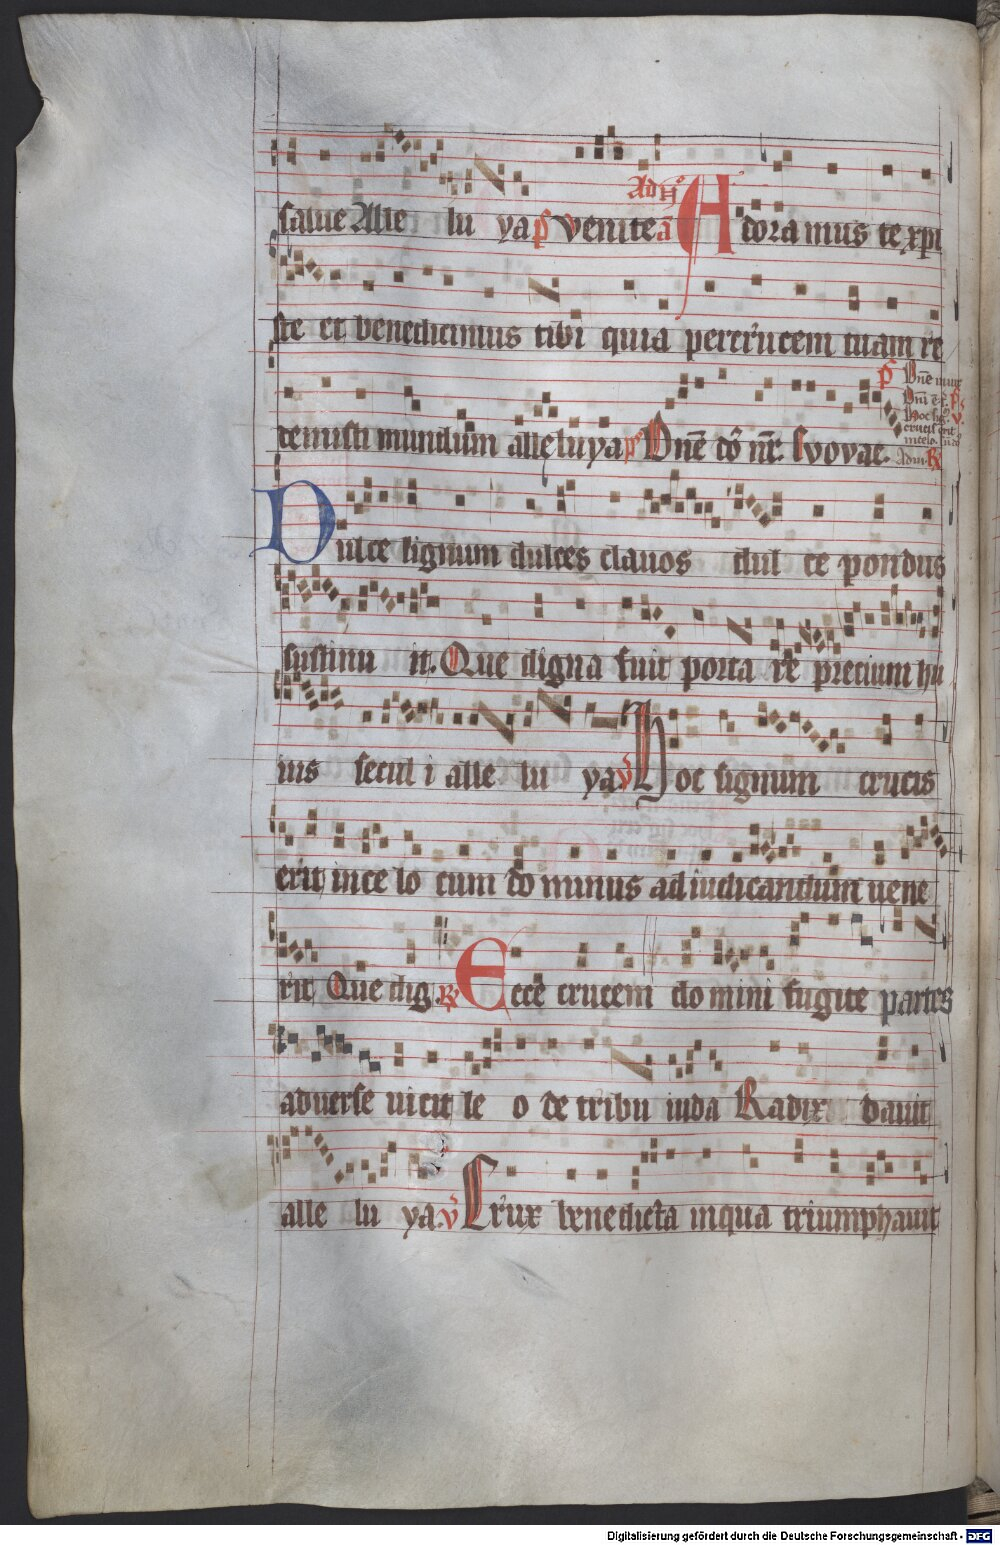 Ad noc̄
salue Alle lu ya p̄s venite a᷑ Adoramus te xpi
ste et benedicimus tibi quia per crucem tuam re
demisti mundum alleluya p̄s Dn̄e dō nr̄. Evovae.
p̄s Dn̄e
Dulce lignum dulces clauos dul ce pondus
sustinu it. Que digna fuit porta re precium hu
ius secul i alle lu ya. v̊ Hoc signum crucis
erit in ce lo cum do minus ad iudicandum uene
rit Que dig R Ecce crucem do mini fugite partes
aduerse uicit le o de tribu iuda Radix dauit
alle lu ya. v̊ Crux benedicta in qua triumphauit
Digitalisierung gefördert durch die Deutsche Forschungsgemeinschaft - DFG